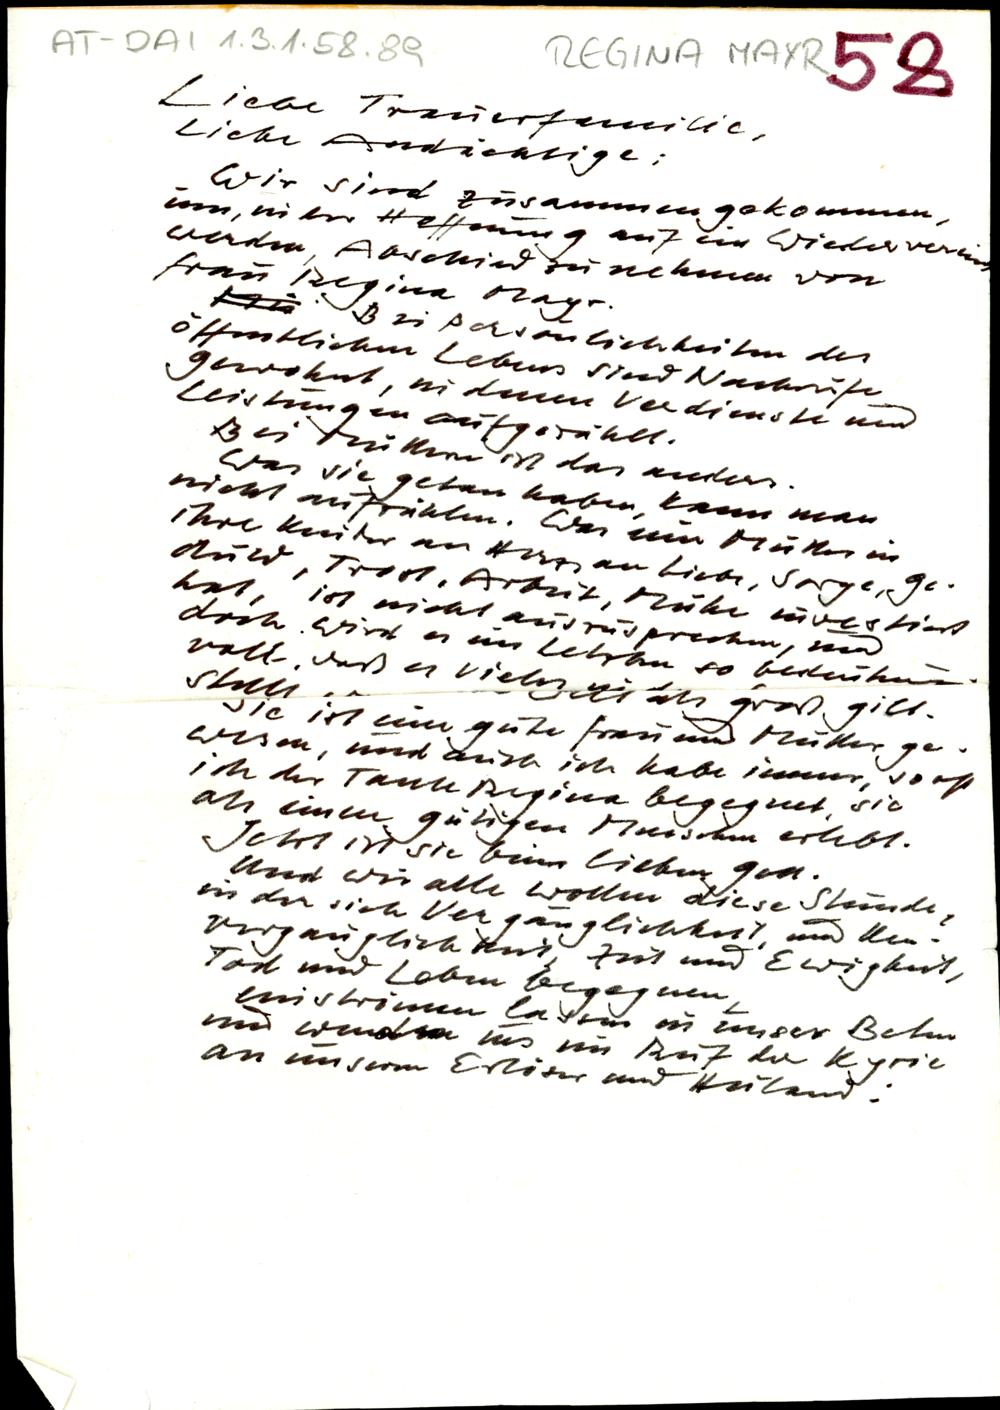 AT-DAI 1.3.1.58.89 REGINA MAYR 58
Liebe Trauerfamilie,
Liebe Andächtige!
Wir sind zusammengekommen,
um, in der Hoffnung auf ein Wiedervereint
werden, Abschied zu nehmen von
Frau Regina Mayr.
Bei Persönlichkeiten des
öffentlichen Lebens sind Nachrufe
gewohnt, in denen Verdienste und
Leistungen aufgezählt.
Bei Müttern ist das anders.
Was sie getan haben, kann man
nicht aufzählen. Was eine Mutter in
ihre Kinder an Herz, an Liebe, Sorge, Ge-
duld, Trost, Arbeit, Mühe investiert
hat, ist nicht auszusprechen, und
doch wird es im Letzten so bedeutungs-
voll, daß es als groß gilt.
Sie ist eine gute Frau und Mutter ge-
wesen, und auch ich habe immer, so oft
ich der Tante Regina begegnet, sie
als einen gütigen Menschen erlebt.
Jetzt ist sie beim lieben Gott.
Und wir alle wollen diese Stunde,
in der sich Vergänglichkeit und Un-
vergänglichkeit, Zeit und Ewigkeit,
Tod und Leben begegnen,
einstimmen lassen in unser Beten
und wenden uns im Ruf des Kyrie
an unsern Erlöser und Heiland: